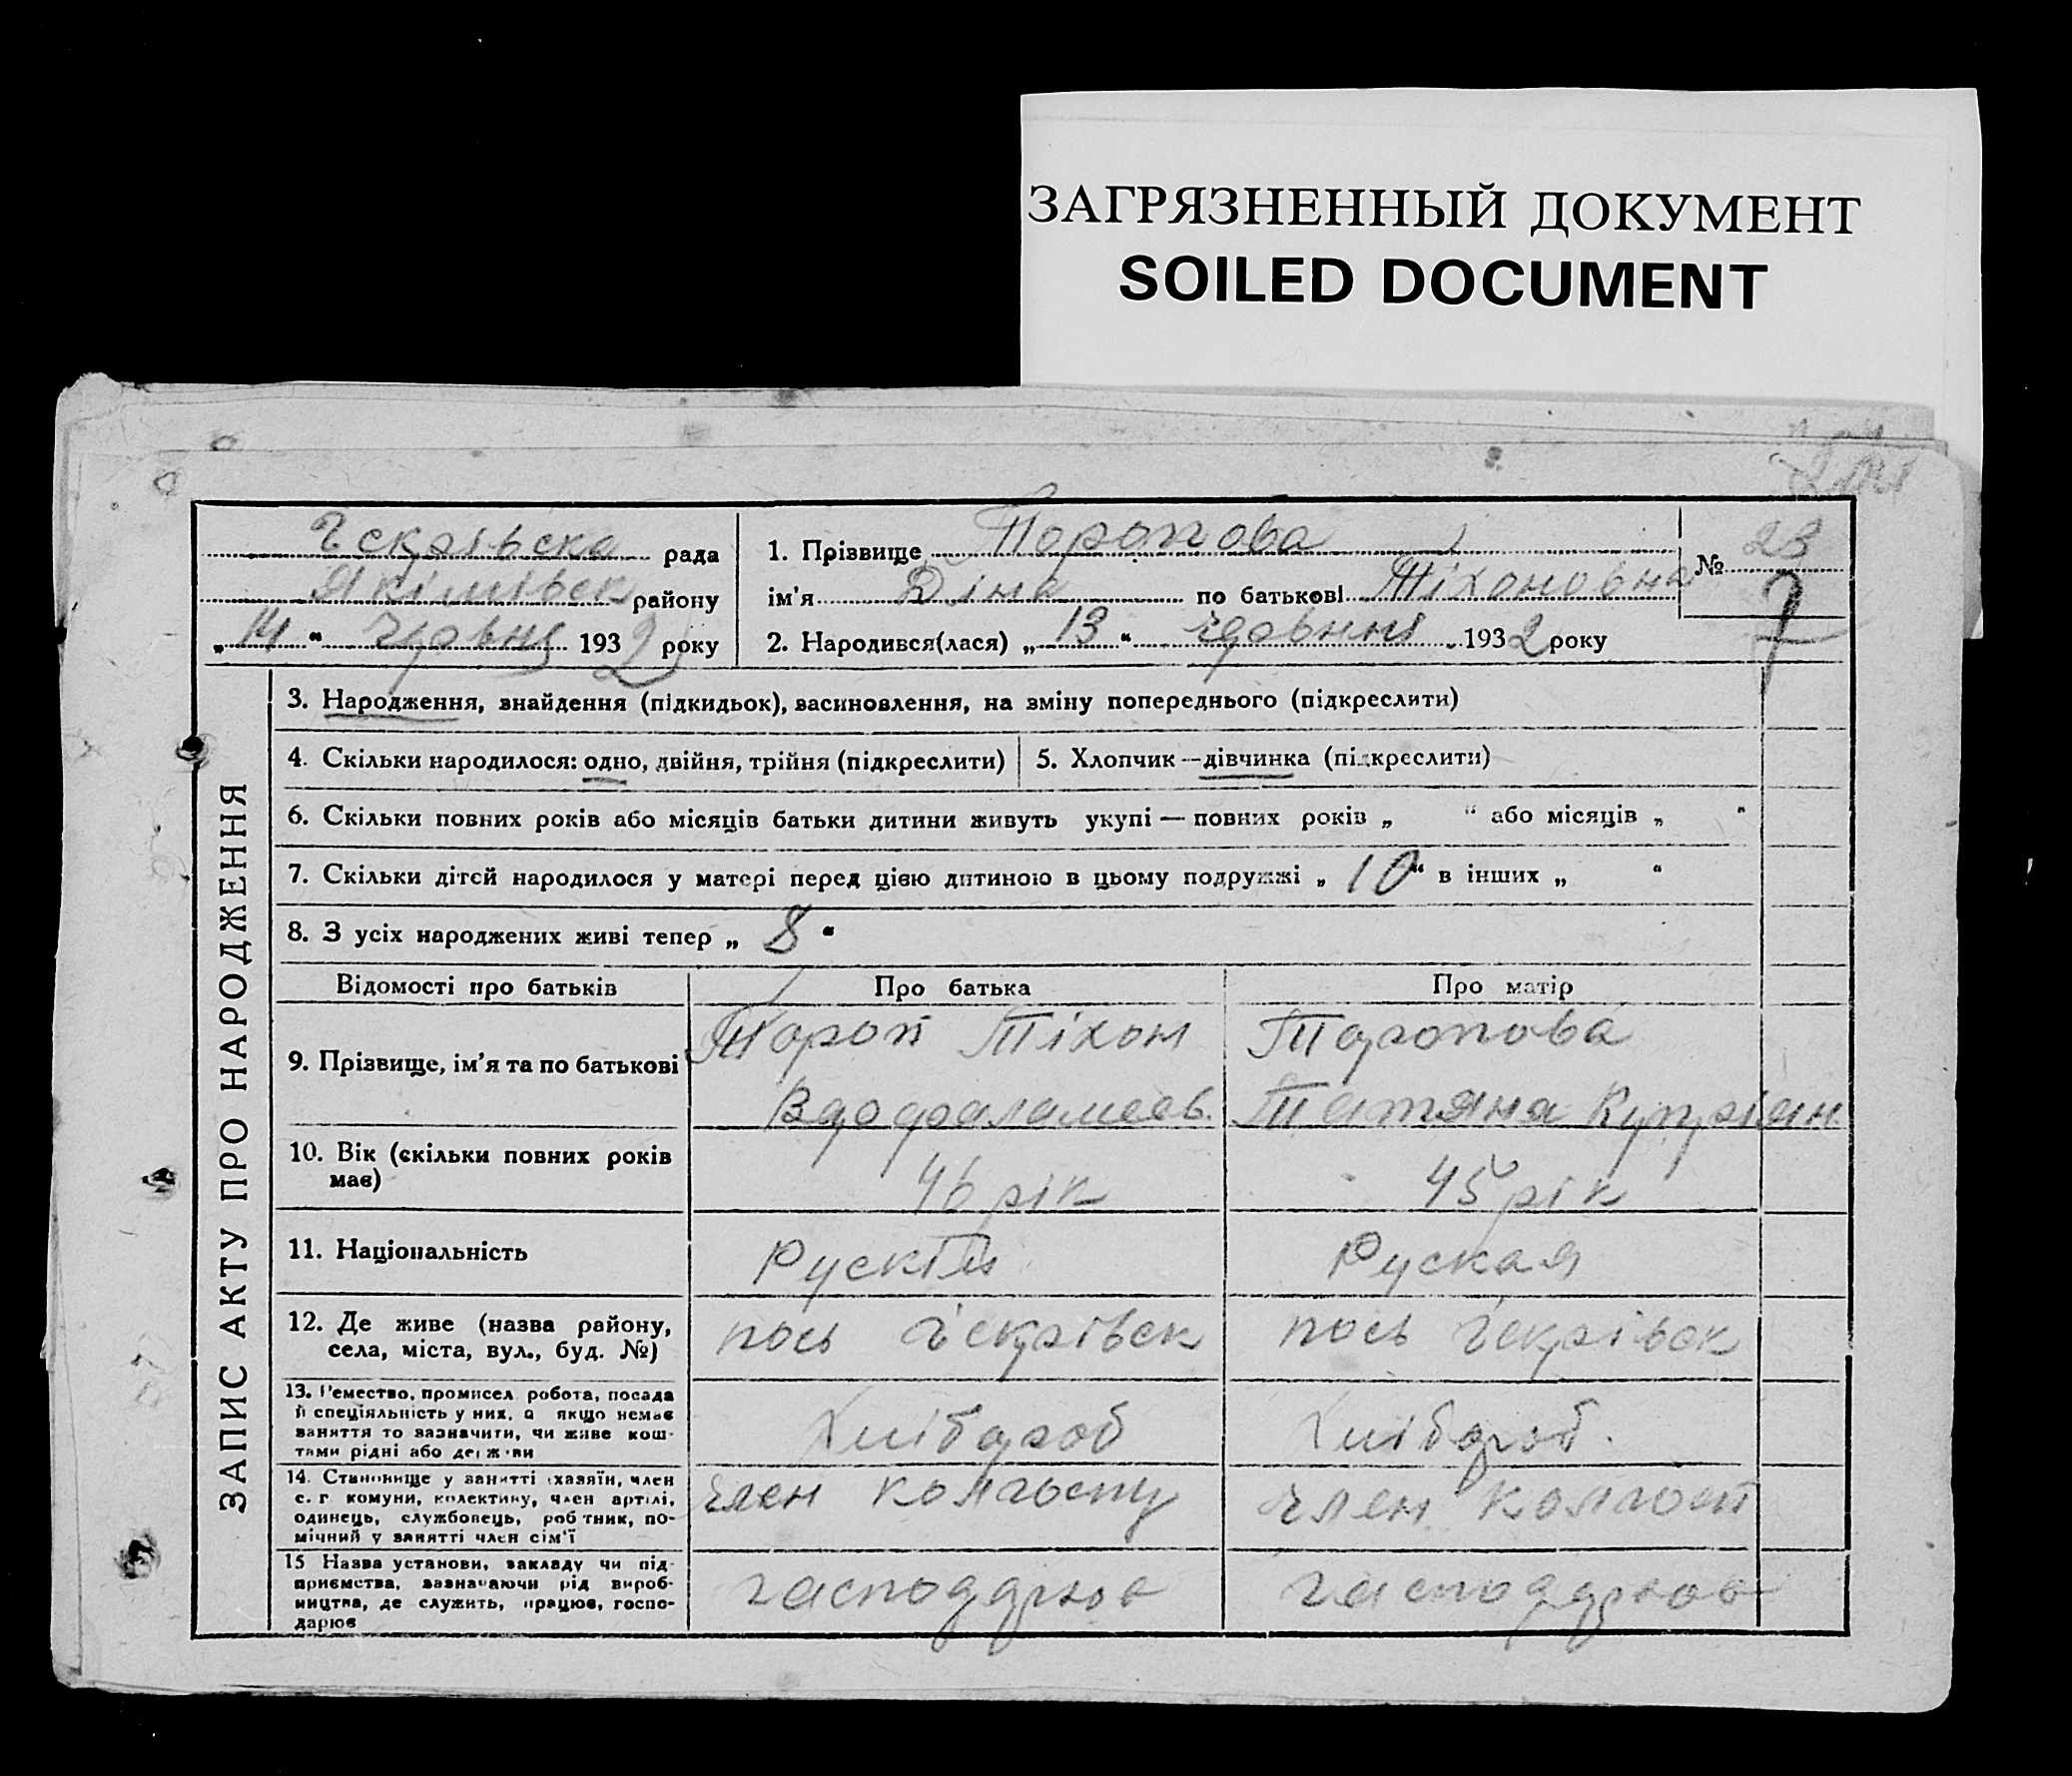 ЗАГРЯЗНЕННЫЙ ДОКУМЕНТ
SOILED DOCUMENT
рада
Якімівск району
„14“ червня 1932 року
1. Прізвище Торопова
ім'я Діна по батькові Тіхоновна
2. Народився(лася) „13“ червння 1932 року
№ 23
7
ЗАПИС АКТУ ПРО НАРОДЖЕННЯ
3. Народження, знайдення (підкидьок), васиновлення, на зміну попереднього (підкреслити)
4. Скільки народилося: одно, двійня, трійня (підкреслити)
5. Хлопчик—дівчинка (підкреслити)
6. Скільки повних років або місяців батьки дитини живуть укупі — повних років „ “ або місяців „ “
7. Скільки дітей народилося у матері перед цією дитиною в цьому подружжі „10“ в інших „ “
8. З усіх народжених живі тепер „8“
Відомості про батьків Про батька Про матір
9. Прізвище, ім'я та по батькові
Тороп Тіхон
Торопова
Татяна Купріян
10. Вік (скільки повних років
має)
46 рік
45 рік
11. Національність
Рускій
Руская
12. Де живе (назва району,
села, міста, вул., буд. №)
13. Ремество, промисел робота, посада
й спеціяльність у них, а якщо немає
заняття то зазначити, чи живе кош-
тами рідні або держави
Хлібороб
Хлібороб.
14. Становище у занятті (хазяїн, член
с. г комуни, колективу, член артілі,
одинець, службовець, робтник, по-
мічний у занятті член сім'ї
член колгоспу
член колгосп
15 Назва установи, закладу чи під-
приємства, зазначаючи рід вироб-
ництва, де служить, працює, госпо-
дарює